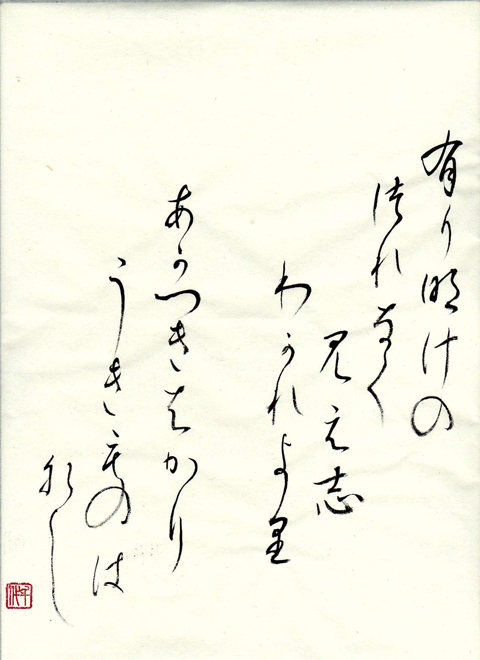 有り明けの
津れなく
見え志
わかれより
あかつきはかり
うきものは
なし